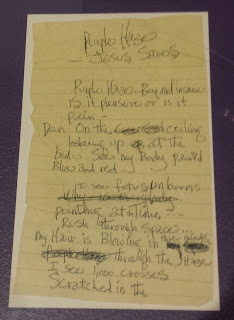 Purple Haze
- Jesus Saves
Purple Haze - Beyond insane
is it pleasure or is it
pain -
Down On the ceiling
looking up at the
bed... See my Body painted
Blue and red...
I see fetus unborns
pointing at
Rush through space...
my Hair is Blowing in
through the Haze
I see 1,000 crosses
scratched in the